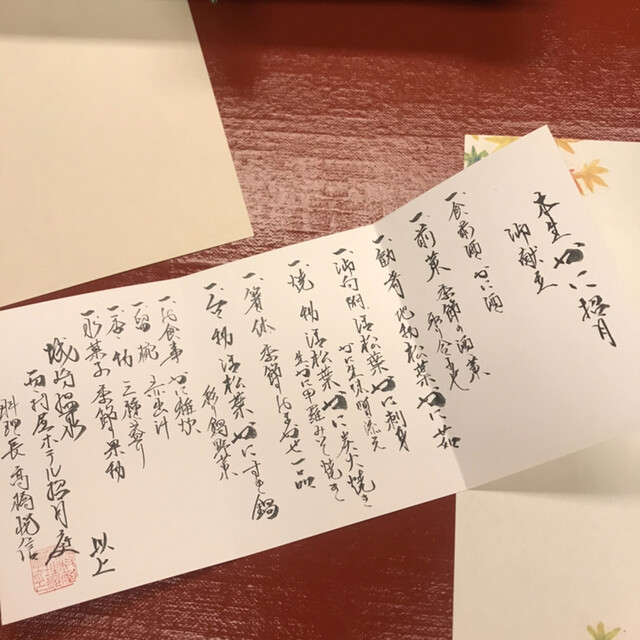 本生かに招月
御献立
一、食前酒 かに酒
一、前菜 季節の酒菜
取り合せ
一、勧肴 地物松葉かに茹
一、御向附 活松葉かに刺身
かに生味噌添え
一、焼物 活松葉かに炭火焼き
生かに甲羅みそ焼き
一、箸休 季節のお任せ一品
一、台の物 活松葉かにすき鍋
彩り鍋野菜
一、お食事 かに雑炊
一、留椀 赤出汁
一、香の物 三種盛り
一、お菓子 季節の果物
以上
城崎温泉
西村屋ホテル招月庭
料理長 高橋悦信